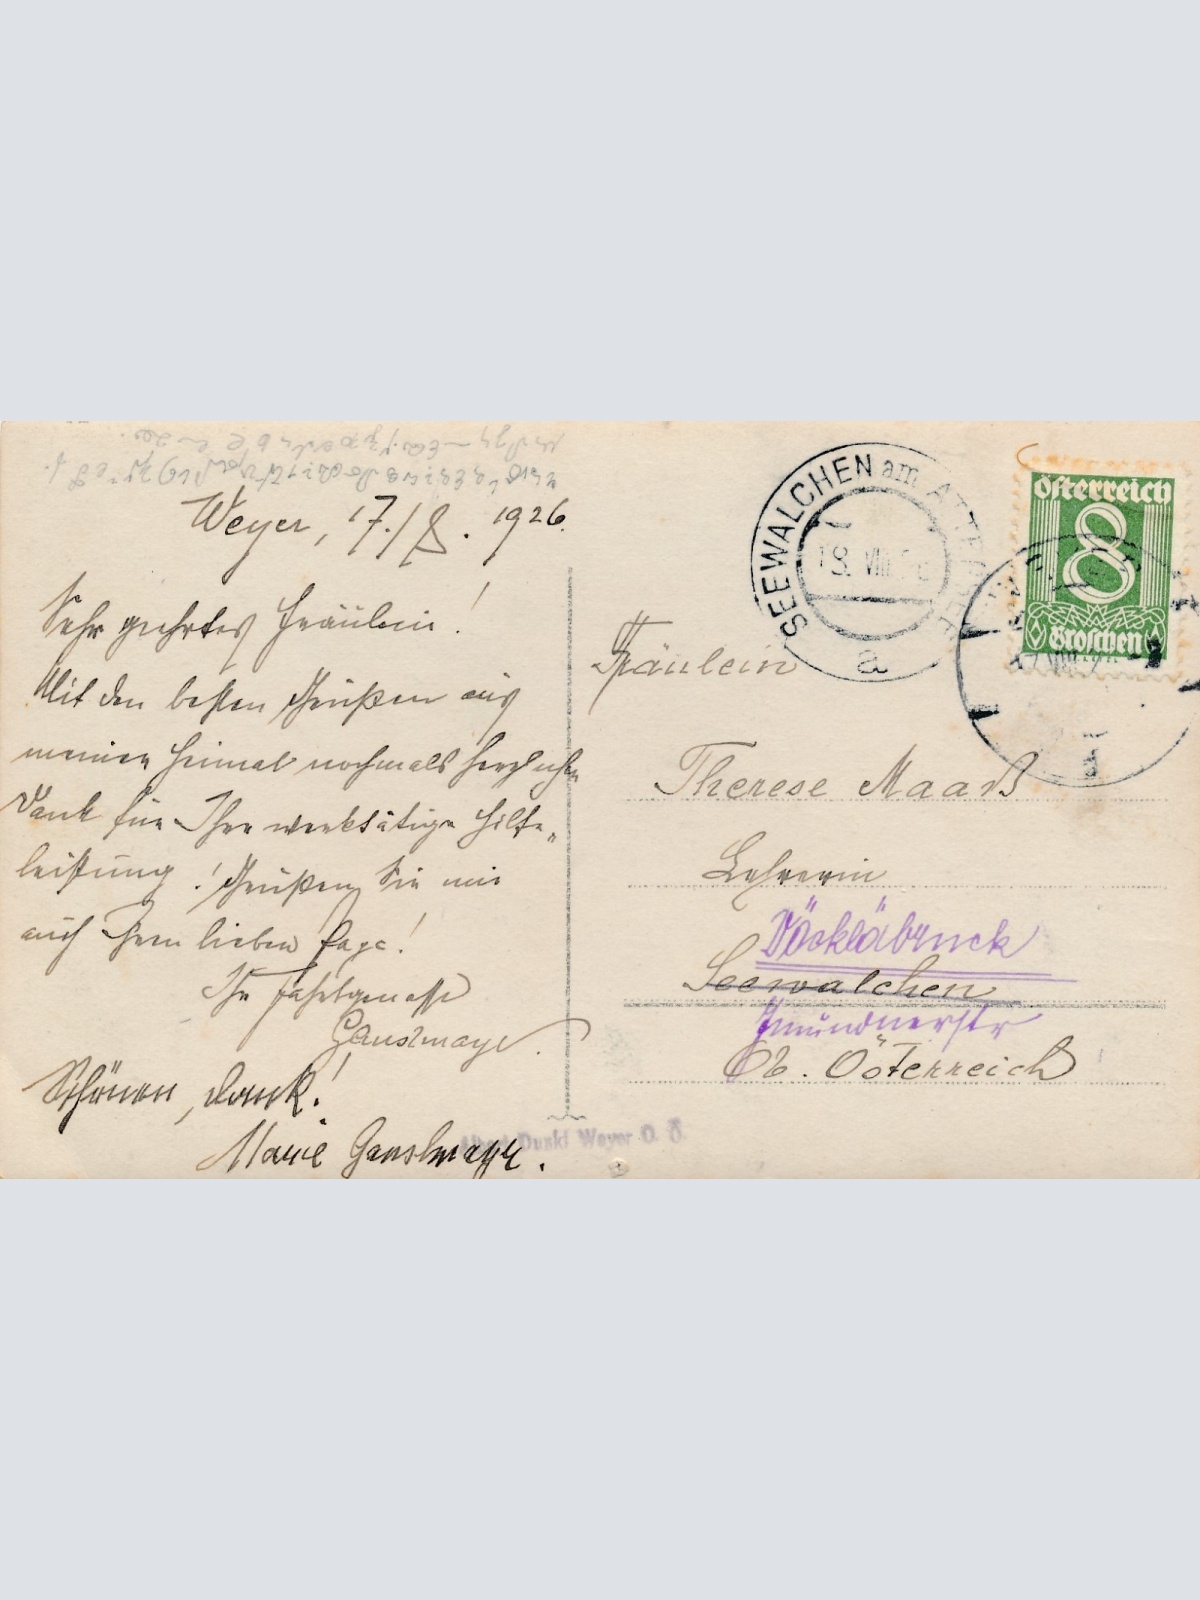 Weyer, 17./8. 1926.
Sehr geehrtes Fräulein!
Mit den besten Grüßen aus
meiner Heimat nochmals herzlichen
Dank für Ihre werktätige Hilfe„
leistung! Grüßen Sie mir
auch Ihren lieben
Ihr Fahrtgenosse
Ganslmayr.
Schönen Dank!
Marie Ganslmayr.
SEEWALCHEN am ATTERSEE
18. VIII.
a
Österreich
8
Groschen
Fräulein
Therese Maaß
Lehrerin
Vöcklabruck
Seewalchen
Gmundnerstr
Ob. Österreich
Duski Weyer O. Ö.